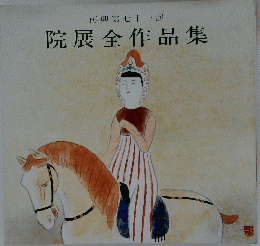 再興第七十一回
院展全作品集